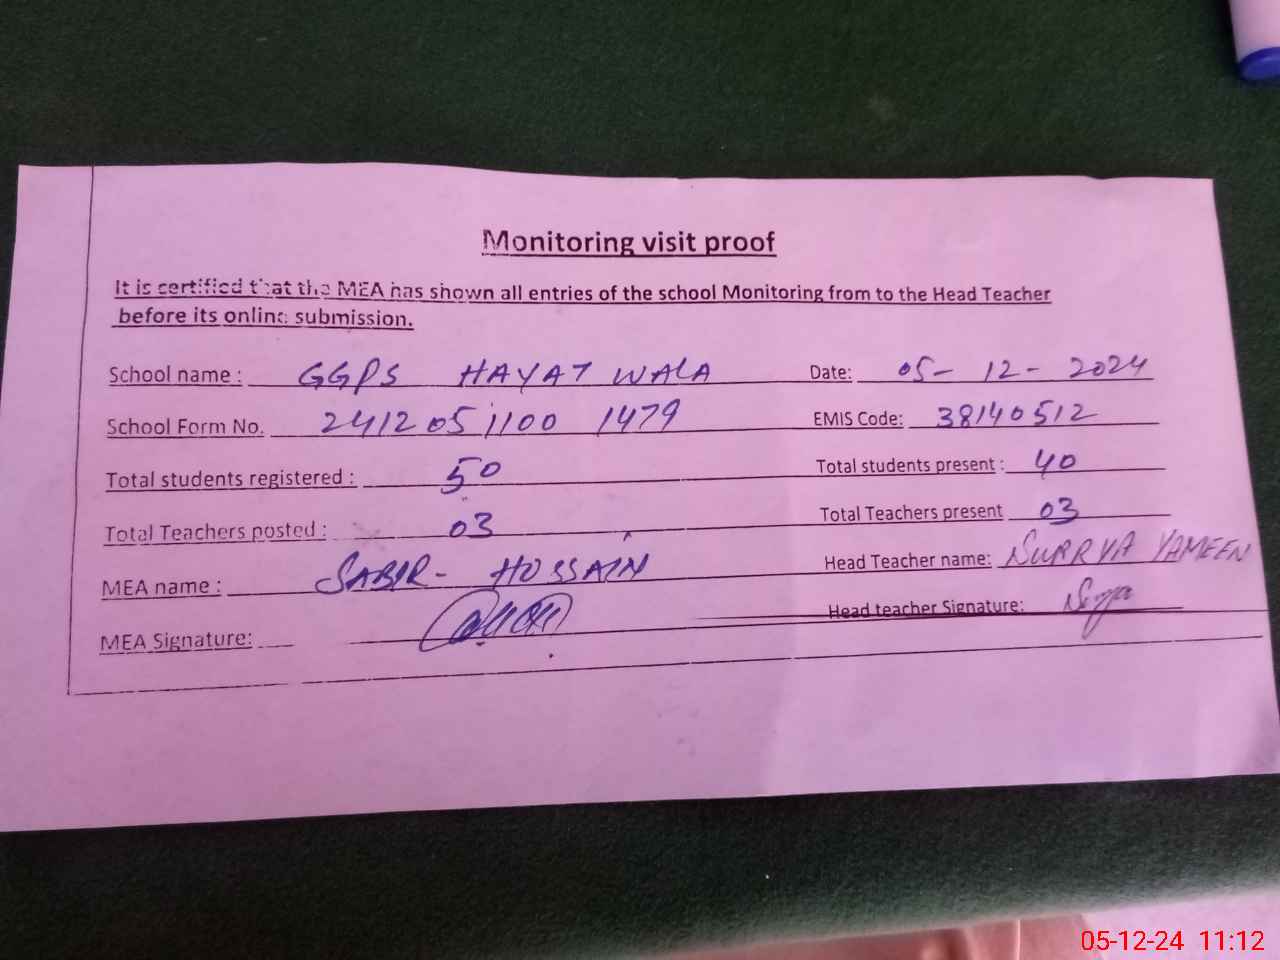 Monitoring visit proof
It is certified that the MEA has shown all entries of the school Monitoring from to the Head Teacher
before its online submission.
School name : GGPS HAYAT WALA Date: 05- 12- 2024
School Form No. 2412051100 1479 EMIS Code: 38140512
Total students registered : 50 Total students present : 40
Total Teachers posted : 03 Total Teachers present 03
MEA name : SABIR- HUSSAIN Head Teacher name: SURRYA YAMEEN
MEA Signature: Head teacher Signature:
05-12-24 11:12